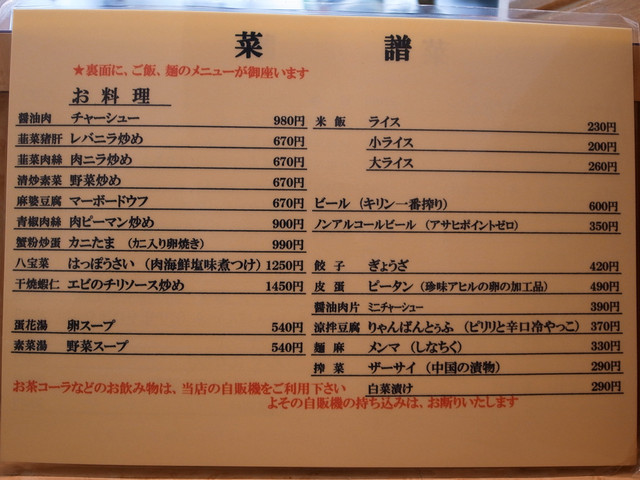 菜 譜
★裏面に、ご飯、麺のメニューが御座います
お料理
醤油肉 チャーシュー 980円
韮菜猪肝 レバニラ炒め 670円
韮菜肉絲 肉ニラ炒め 670円
清炒素菜 野菜炒め 670円
麻婆豆腐 マーボードウフ 670円
青椒肉絲 肉ピーマン炒め 900円
蟹粉炒蛋 カニたま (カニ入り卵焼き) 990円
八宝菜 はっぽうさい (肉海鮮塩味煮つけ) 1250円
干焼蝦仁 エビのチリソース炒め 1450円
蛋花湯 卵スープ 540円
素菜湯 野菜スープ 540円
米飯 ライス 230円
小ライス 200円
大ライス 260円
ビール (キリン一番搾り) 600円
ノンアルコールビール (アサヒポイントゼロ) 350円
餃子 ぎょうざ 420円
皮蛋 ピータン (珍味アヒルの卵の加工品) 490円
醤油肉片 ミニチャーシュー 390円
涼拌豆腐 りゃんばんとぅふ (ピリリと辛口冷やっこ) 370円
麺麻 メンマ (しなちく) 330円
搾菜 ザーサイ (中国の漬物) 290円
白菜漬け 290円
お茶コーラなどのお飲み物は、当店の自販機をご利用下さい
よその自販機の持ち込みは、お断りいたします